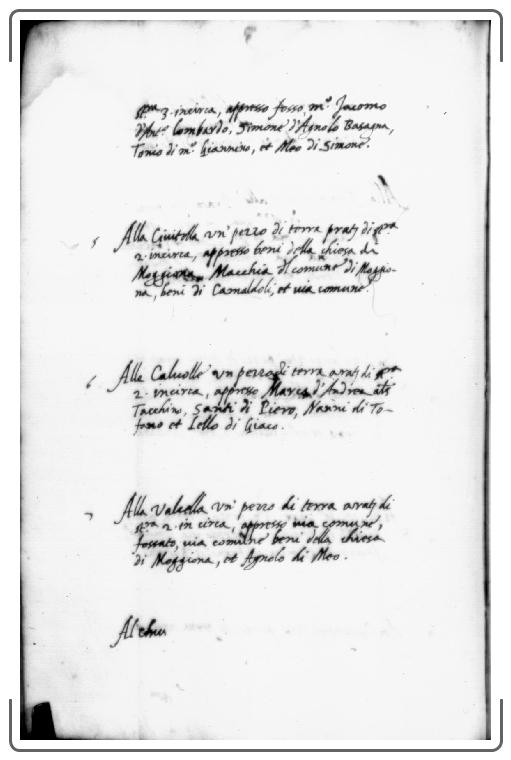 st.ra 3. incirca, appresso fosso, m.o Jacomo
d'Ant.o Lombardo, Simone d'Agnolo Basagna,
Tonio di m.o Giannino, et Meo di Simone.
5 Alla Civitella un' pezzo di terra prat.a di st.ra
2. incirca, appresso beni della chiesa di
Moggiona, Macchia del comune di Moggio-
na, beni di Camaldoli, et via comune.
6 Alle Calvolle un pezzo di terra arat.a di st.ra
2. incirca, appresso Marco d'Andrea al.s
Tacchino, Santi di Piero, Nanni di To-
fano et Lello di Giaco.
7 Alla Valcella un' pezzo di terra arat.a di
st.ra 2. in circa, appresso via comune,
fossato, via comune beni della chiesa
di Moggiona, et Agnolo di Meo.
Al